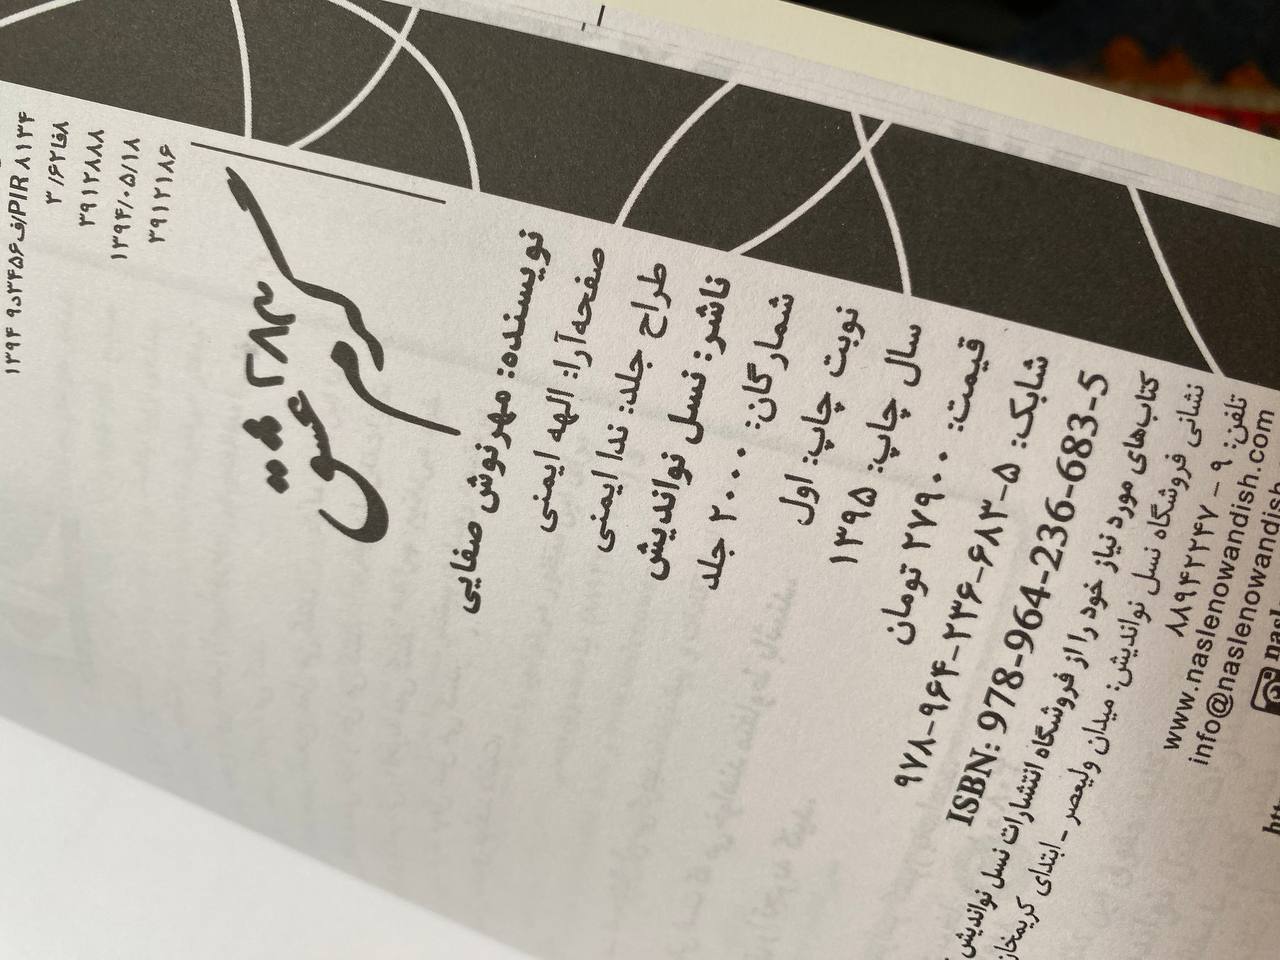 ۱۳۹۴ ۹د۳۴۵۶ف/PIR ۸۱۳۴
۳/۶۲فا۸
۳۹۱۲۸۸۸
۱۳۹۴/۰۵/۱۸
۳۹۱۲۱۸۶
۲۸۳ گرم عشق
نویسنده: مهرنوش صفایی
صفحه‌آرا: الهه ایمنی
طراح جلد: ندا ایمنی
ناشر: نسل نواندیش
شمارگان: ۲۰۰۰ جلد
نوبت چاپ: اول
سال چاپ: ۱۳۹۵
قیمت: ۲۷۹۰۰ تومان
شابک: ۵-۶۸۳-۲۳۶-۹۶۴-۹۷۸
ISBN: 978-964-236-683-5
کتاب‌های مورد نیاز خود را از فروشگاه انتشارات نسل نواندیش
نشانی فروشگاه نسل نواندیش: میدان ولیعصر - ابتدای کریمخان
تلفن: ۹ - ۸۸۹۴۲۲۴۷
www.naslenowandish.com
info@naslenowandish